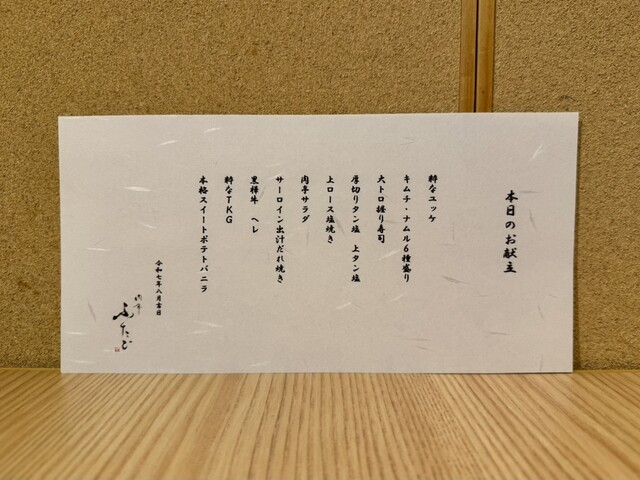 本日のお献立
粋なユッケ
キムチ・ナムル6種盛り
大トロ握り寿司
厚切りタン塩 上タン塩
上ロース塩焼き
肉亭サラダ
サーロイン出汁だれ焼き
黒樺牛 ヘレ
粋なTKG
本格スイートポテトバニラ
令和七年八月吉日
肉亭
ふたご